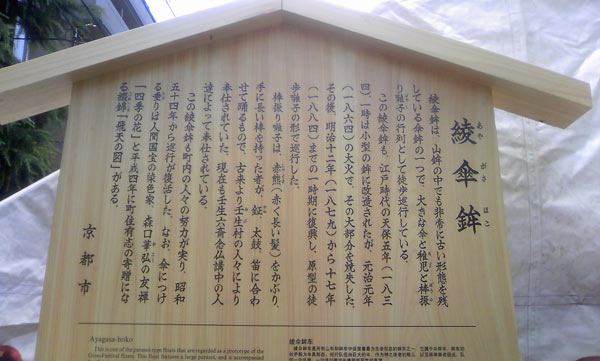 綾傘鉾
あや がさ ほこ
綾傘鉾は、山鉾の中でも非常に古い形態を残
している傘鉾の一つで、大きな傘と稚児と棒振
り囃子の行列として徒歩巡行している。
この綾傘鉾も、江戸時代の天保五年(一八三
四)一時は小型の鉾に改造されたが、元治元年
(一八六四)の大火で、その大部分を焼失した。
その後、明治十二年(一八七九)から十七年
(一八八四)までの一時期に復興し、原型の徒
歩囃子の形で巡行した。
棒振り囃子は、赤熊(赤く長い髪)をかぶり、
手に長い棒を持った者が、鉦、太鼓、笛に合わ
せて踊るもので、古来より壬生村の人々により
奉仕されていた。現在も壬生六斎念仏講中の人
達によって奉仕されている。
この綾傘鉾も町内の人々の努力が実り、昭和
五十四年から巡行が復活した。なお、傘につけ
る垂りは人間国宝の染色家、森口華弘の友禅
「四季の花」と平成四年に町住有志の寄贈にな
る綴錦「飛天の図」がある。
京都市
Ayagasa-hoko
This is one of the parasol-type floats that are regarded as a prototype of the
Gion-Festival floats. This float features a large parasol, and is accompanied
綾傘鉾车